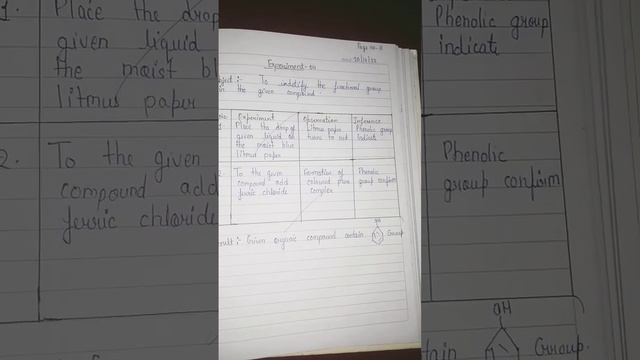 Page no- 8
Date 20/12/22
Experiment-04
bject :- To indetify the functional group
in the given compound.
Experiment
Observation
Inference
1
Place the drop of
given liquid on
the moist blue
litmus paper
Litmus paper
turns to red
Phenolic group
indicate
2
To the given
compound add
ferric chloride
Formation of
coloured
complex
Phenolic
group confirm
sult :- Given organic compound contain
OH
Group
1.
Place the drop
given liquid
the moist bl
litmus paper
Phenolic group
indicate
2.
To the given
compound add
ferric chloride
Phenolic
group confirm
OH
tain
Group.